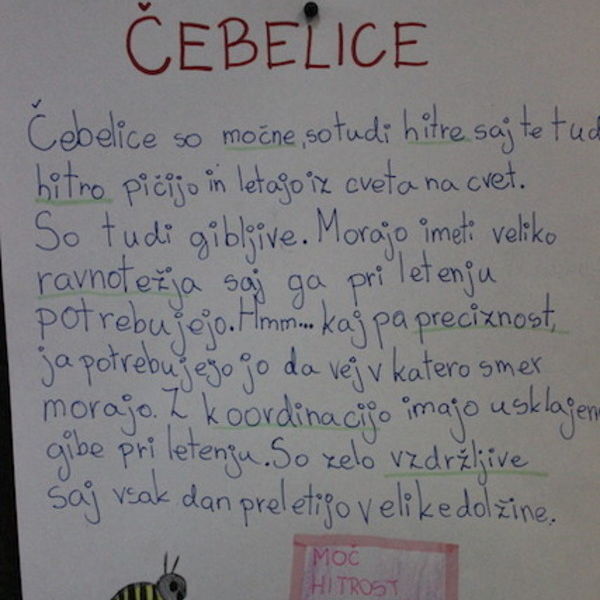 ČEBELICE
Čebelice so močne, so tudi hitre saj te tud
hitro pičijo in letajo iz cveta na cvet.
So tudi gibljive. Morajo imeti veliko
ravnotežja saj ga pri letenju
potrebujejo. Hmm... kaj pa preciznost,
ja potrebujejo jo da vej v katero smer
morajo. Z koordinacijo imajo usklajen
gibe pri letenju. So zelo vzdržljive
saj vsak dan preletijo velike dolžine.
MOČ
HITROST